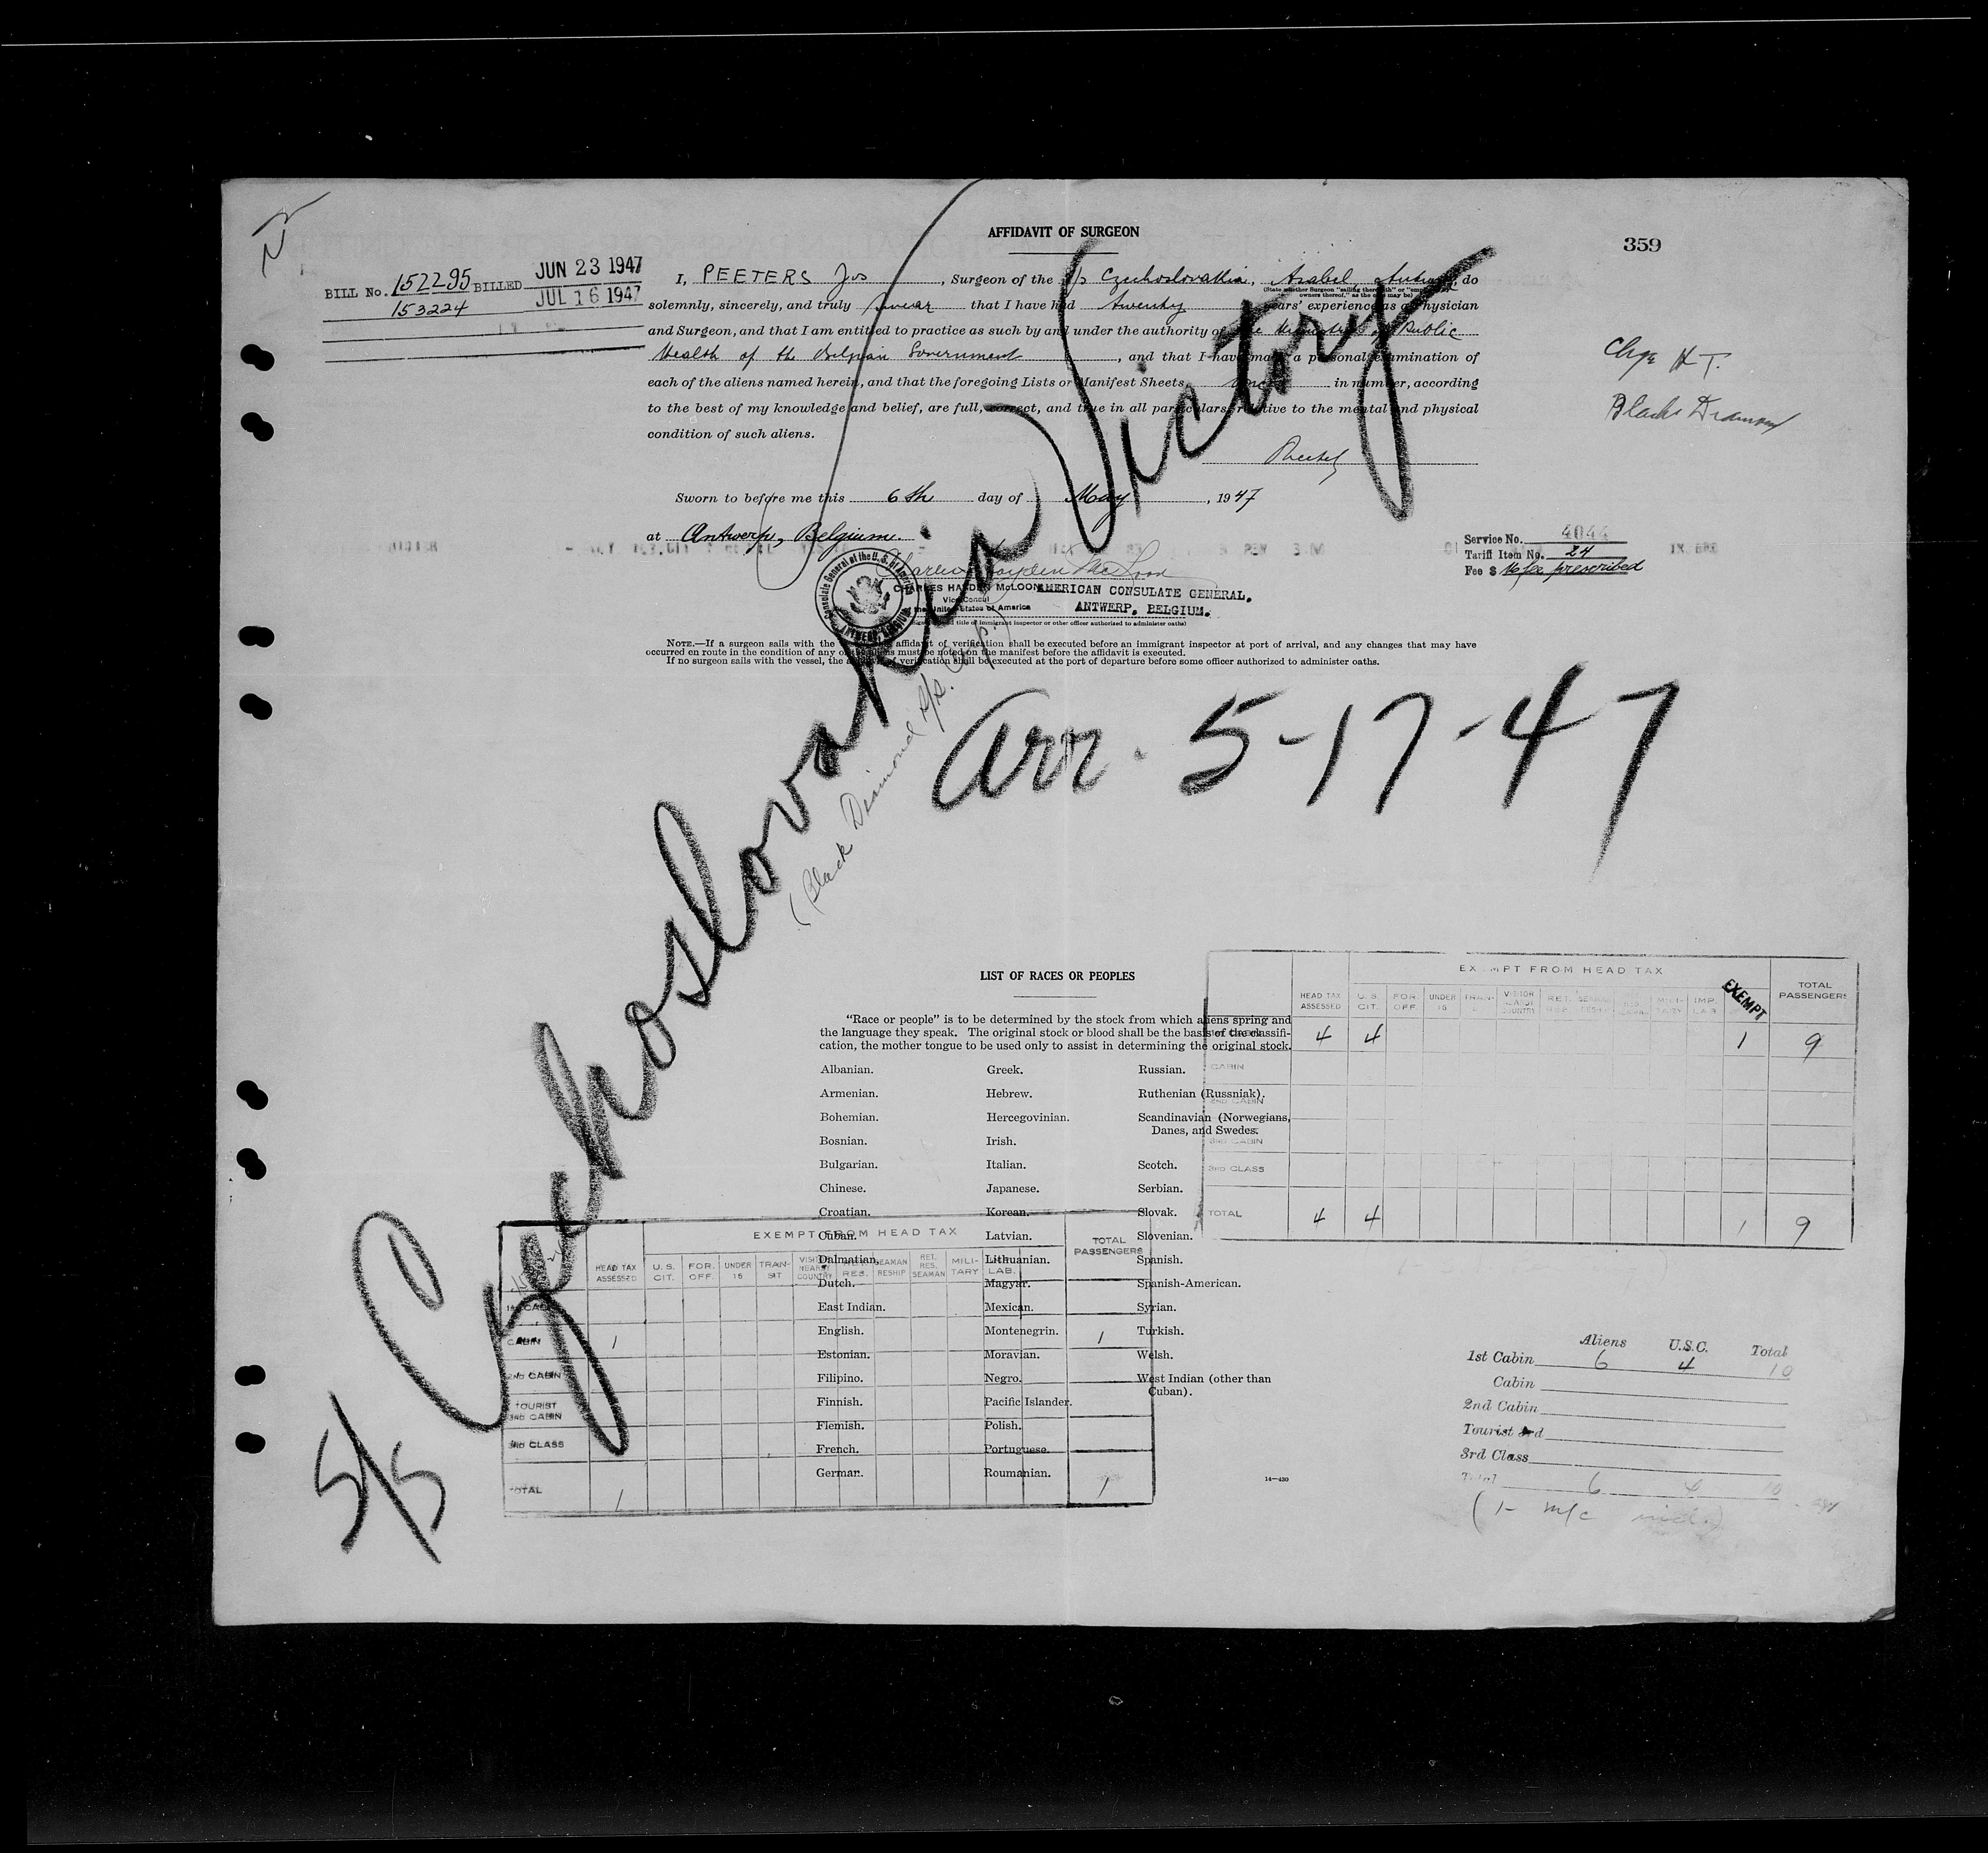 AFFIDAVIT OF SURGEON
359
BILL No. 152295 BILLED JUN 23 1947
153224 JUL 16 1947
I, PEETERS Jos, Surgeon of the S/S Czechoslovakia, do
(State whether Surgeon "sailing therewith" or "employed by owners thereof," as the case may be)
solemnly, sincerely, and truly swear that I have had twenty years' experience as a Physician
and Surgeon, and that I am entitled to practice as such by and under the authority of the Ministry of Public
Health of the Belgian Government, and that I have made a personal examination of
each of the aliens named herein, and that the foregoing Lists or Manifest Sheets, in number, according
to the best of my knowledge and belief, are full, correct, and true in all particulars relative to the mental and physical
condition of such aliens.
Chge H T.
Black Diamond
Sworn to before me this 6th day of May, 1947
at Antwerp, Belgium.
Service No. 4044
Tariff Item No. 24
Fee $ No fee prescribed
Consulate General of the U.S. of America
ANTWERP, BELGIUM
Charles Hayden McLoon
CHARLES HAYDEN McLOON AMERICAN CONSULATE GENERAL,
Vice Consul
of the United States of America ANTWERP, BELGIUM.
title of immigrant inspector or other officer authorized to administer oaths)
NOTE.—If a surgeon sails with the affidavit of verification shall be executed before an immigrant inspector at port of arrival, and any changes that may have
occurred en route in the condition of any of must be noted on the manifest before the affidavit is executed.
If no surgeon sails with the vessel, the of verification shall be executed at the port of departure before some officer authorized to administer oaths.
S/S Czechoslovakia Victory
(Black Diamond S/S. Corp.)
Arr. 5-17-47
LIST OF RACES OR PEOPLES
"Race or people" is to be determined by the stock from which aliens spring and
the language they speak. The original stock or blood shall be the basis of the classifi-
cation, the mother tongue to be used only to assist in determining the original stock.
Albanian.
Armenian.
Bohemian.
Bosnian.
Bulgarian.
Chinese.
Croatian.
Cuban.
Dalmatian.
Dutch.
East Indian.
English.
Estonian.
Filipino.
Finnish.
Flemish.
French.
German.
Greek.
Hebrew.
Hercegovinian.
Irish.
Italian.
Japanese.
Korean.
Latvian.
Lithuanian.
Magyar.
Mexican.
Montenegrin.
Moravian.
Negro.
Pacific Islander.
Polish.
Portuguese.
Roumanian.
Russian.
Ruthenian (Russniak).
Scandinavian (Norwegians,
Danes, and Swedes.
Scotch.
Serbian.
Slovak.
Slovenian.
Spanish.
Spanish-American.
Syrian.
Turkish.
Welsh.
West Indian (other than
Cuban).
14—430
EXEMPT FROM HEAD TAX
HEAD TAX ASSESSED U. S. CIT. FOR. OFF. UNDER 16 TRAN- VISITOR NEARBY COUNTRY RET. SEAMAN MILI- TARY IMP. LAB. EXEMPT TOTAL PASSENGERS
4 4 1 9
CABIN
2ND CABIN
3RD CABIN
3RD CLASS
TOTAL 4 4 1 9
EXEMPT FROM HEAD TAX
HEAD TAX ASSESSED U. S. CIT. FOR. OFF. UNDER 16 TRAN- SIT VISITOR NEARBY COUNTRY RES. SEAMAN RESHIP RET. RES. SEAMAN MILI- TARY LAB. TOTAL PASSENGERS
1st CABIN
CABIN 1 1
2ND CABIN
TOURIST
3RD CABIN
3RD CLASS
TOTAL 1 1
Aliens U.S.C. Total
1st Cabin 6 4 10
Cabin
2nd Cabin
Tourist 3rd
3rd Class
Total 6 4 10
(1- m/c incl.)